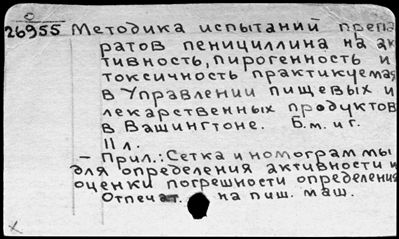 0
26955 Методика испытаний препа
ратов пенициллина на ак
тивность, пирогенность и
токсичность практикуемая
в Управлении пищевых и
лекарственных продуктов
в Вашингтоне. Б.м. и г.
11 л.
– Прил.: Сетка и номограммы
для определения активности и
оценки погрешности определения
Отпечат. на пиш. маш.
x